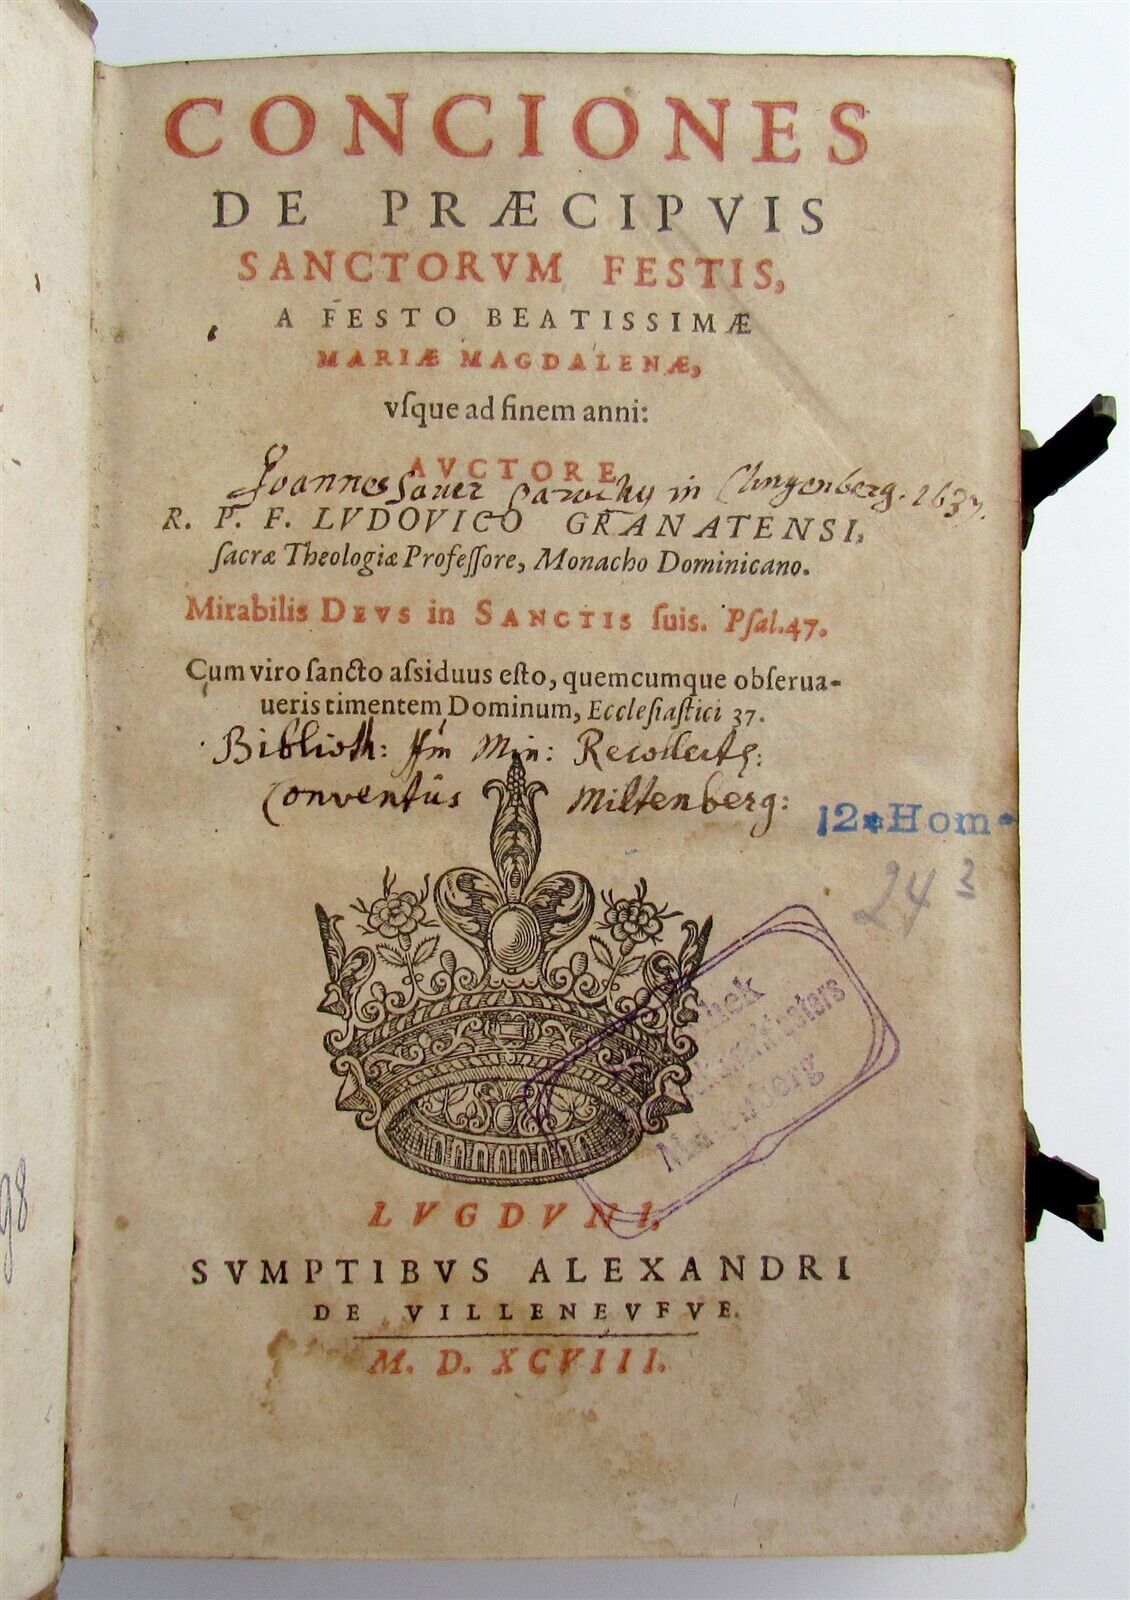 CONCIONES
DE PRÆCIPVIS
SANCTORVM FESTIS,
A FESTO BEATISSIMÆ
MARIÆ MAGDALENÆ,
vſque ad finem anni:
AVCTORE
Joannes Sauer parochus in Clingenberg. 1637.
R. P. F. LVDOVICO GRANATENSI,
ſacræ Theologiæ Profeſſore, Monacho Dominicano.
Mirabilis DEVS in SANCTIS ſuis. Pſal.47.
Cum viro ſancto aſsiduus eſto, quemcumque obſerua-
ueris timentem Dominum, Eccleſiaſtici 37.
Biblioth: Min: Recollectę:
Conventûs Miltenberg:
12*Hom
24 3
LVGDVNI,
SVMPTIBVS ALEXANDRI
DE VILLENEVFVE.
M. D. XCVIII.
98